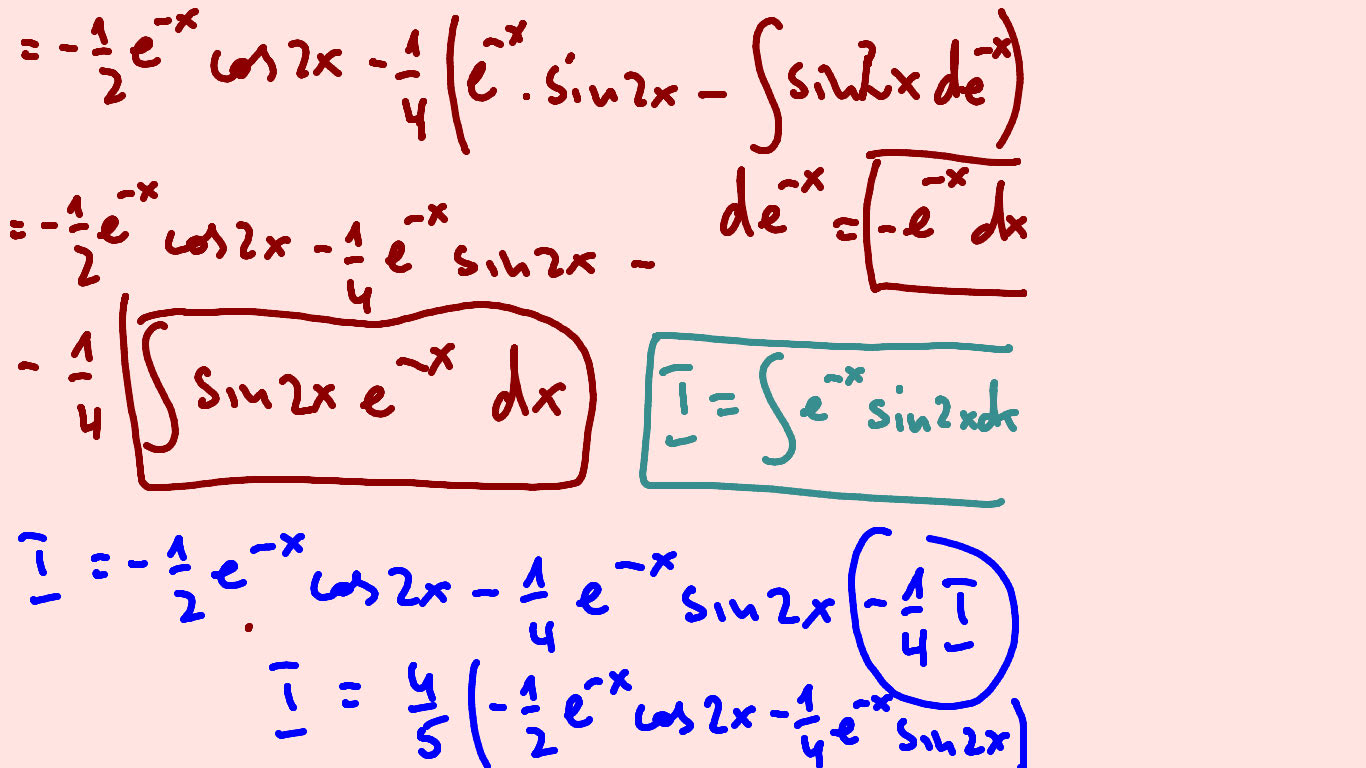 = -1/2 e^{-x} cos2x - 1/4 (e^{-x} . sin2x - ∫ sin2x de^{-x})
de^{-x} = -e^{-x} dx
= -1/2 e^{-x} cos2x - 1/4 e^{-x} sin2x -
- 1/4 ∫ sin2x e^{-x} dx
I = ∫ e^{-x} sin2xdx
I = -1/2 e^{-x} cos2x - 1/4 e^{-x} sin2x - 1/4 I
I = 4/5 (-1/2 e^{-x} cos2x - 1/4 e^{-x} sin2x)